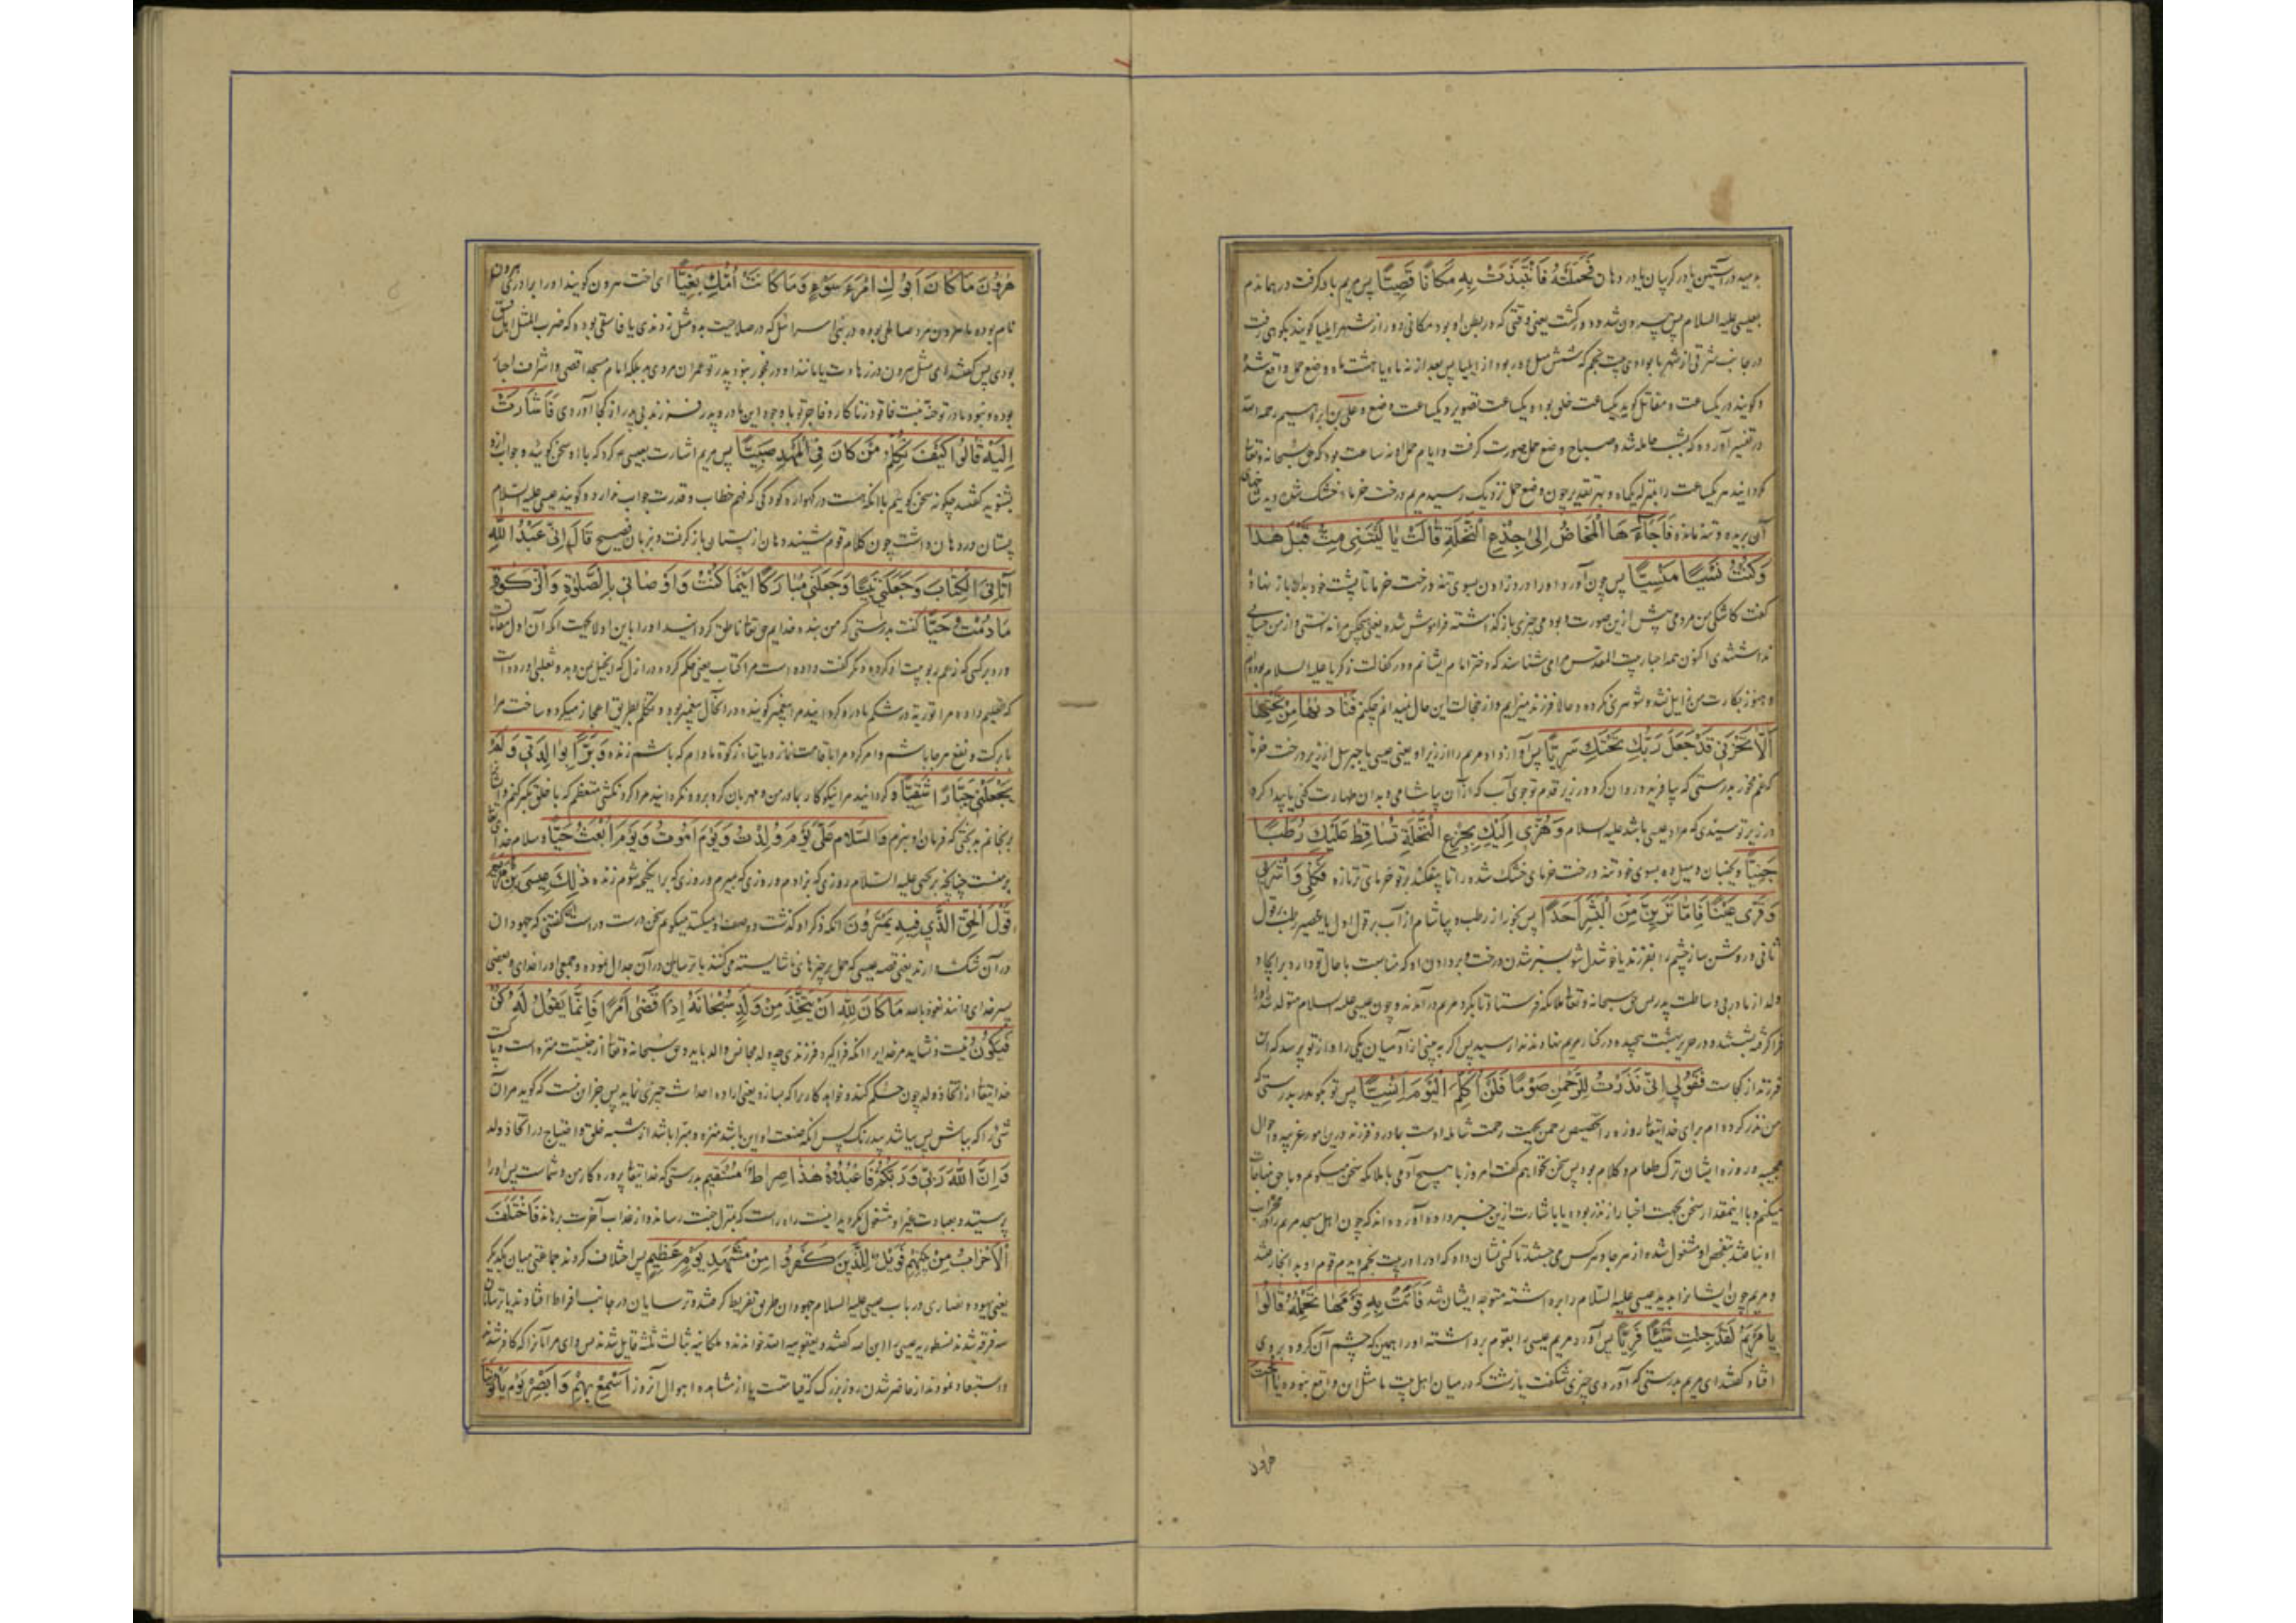 بدمید در آستین یا در گریبان یا در دهان فَحَمَلَتْهُ فَانْتَبَذَتْ بِهِ مَكَانًا قَصِيًّا پس مریم بار گرفت در همان دم
بعیسی علیه السلام پس بیرون شد و دور گشت یعنی وقتی که در بطن او بود مکانی دور از شهر ایلیا گویند بکوهی رفت
در جانب شرقی از شهر یا بوادی بیت لحم که شش میل دور بود از ایلیا پس بعد از نه ماه یا هشت ماه وضع حمل واقع شد
و گویند در یکساعت و مقاتل گوید یکساعت حبلی بود و یکساعت تصویر و یکساعت وضع و علی بن ابراهیم رحمه الله
در تفسیر آورده که بشب حامله شد و صباح وضع حمل صورت گرفت و ایام حمل او نه ساعت بود که حق سبحانه و تعالی
گردانید هر یکساعت را بمنزله یکماه و بهر تقدیر چون وضع حمل نزدیک رسید مریم درخت خرما خشک شده دید شاخهای
آن بریده و تنه مانده فَأَجَاءَهَا الْمَخَاضُ إِلَى جِذْعِ النَّخْلَةِ قَالَتْ يَا لَيْتَنِي مِتُّ قَبْلَ هَذَا
وَكُنْتُ نَسْيًا مَنْسِيًّا پس چون آورد او را درد زادن بسوی تنه درخت خرما تا پشت خود بدان باز نهاد
گفت کاشکی من مردمی پیش ازین صورت و بودمی چیزی بازگذاشته فراموش شده یعنی هیچکس مرا ندانستی و از من حسابی
نداشتندی اکنون همه احبار بیت المقدس مرا می شناسند که دختر امام ایشانم و در کفالت زکریا علیه السلام بوده ام
و هنوز بکارت من زایل نشده شوهری نکرده و حالا فرزند میزایم و از خجالت این حال نمیدانم چکنم فَنَادَاهَا مِنْ تَحْتِهَا
أَلَّا تَحْزَنِي قَدْ جَعَلَ رَبُّكِ تَحْتَكِ سَرِيًّا پس آواز داد مریم را از زیر او یعنی عیسی یا جبرئیل از زیر درخت خرما
که غم مخور بدرستی که بیافرید و روان کرد در زیر قدم تو جوی آب که از آن بیاشامی و بدان طهارت کنی یا پیدا کرد
در زیر تو سیدی که مراد عیسی باشد علیه السلام وَهُزِّي إِلَيْكِ بِجِذْعِ النَّخْلَةِ تُسَاقِطْ عَلَيْكِ رُطَبًا
جَنِيًّا و بجنبان و میل ده بسوی خود تنه درخت خرمای خشک شده را تا بیفکند بر تو خرمای تر تازه فَكُلِي وَاشْرَبِي
وَقَرِّي عَيْنًا فَإِمَّا تَرَيِنَّ مِنَ الْبَشَرِ أَحَدًا پس بخور از رطب و بیاشام از آب بر قول اول یا عصیر رطب بر قول
ثانی و روشن ساز چشم را بفرزند یا خوشدل شو بسبز شدن درخت و بر دادن او که مناسبت با حال تو دارد بر ایجاد
ولد از مادر بی وساطت پدر پس حق سبحانه و تعالی ملائکه فرستاد تا بگرد مریم درآمدند و چون عیسی علیه السلام متولد شد او را
فرا گرفته بشستند و در حریر بهشت پیچیده در کنار مریم نهادند ندا رسید پس اگر به بینی از آدمیان یکی را و از تو پرسد که این
فرزند از کجاست فَقُولِي إِنِّي نَذَرْتُ لِلرَّحْمَنِ صَوْمًا فَلَنْ أُكَلِّمَ الْيَوْمَ إِنْسِيًّا پس تو بگو بدرستی که
من نذر کرده ام برای خدایتعالی روزه را تخصیص رحمن بجهت رحمت شامله اوست بمادر و فرزند درین امور غریبه و احوال
عجیبه و روزه ایشان ترک طعام و کلام بود پس سخن نخواهم گفت امروز با هیچ آدمی یا بملائکه سخن میگویم و با حق مناجات
میکنم و با اینمقدار سخن بجهت اخبار از نذر بوده یا باشارت ازین خبر داده آورده اند که چون اهل مسجد مریم را در محراب
او نیافتند بتفحص او مشغول شده از هر جا و هر کس می جستند تا کسی نشان داد که او را در بیت لحم دیدم قوم او بدانجا رفتند
و مریم چون ایشانرا بدید عیسی علیه السلام را برداشته متوجه ایشان شد فَأَتَتْ بِهِ قَوْمَهَا تَحْمِلُهُ قَالُوا
يَا مَرْيَمُ لَقَدْ جِئْتِ شَيْئًا فَرِيًّا پس آورد مریم عیسی را بقوم برداشته او را همین که چشم آن گروه بروی
افتاد گفتند ای مریم بدرستی که آوردی چیزی شگفت یا زشت که در میان اهل بیت ما مثل این واقع نبوده يَا أُخْتَ
هرون
هَرُونَ مَا كَانَ أَبُوكِ امْرَءَ سَوْءٍ وَمَا كَانَتْ أُمُّكِ بَغِيًّا ای اخت هرون گویند او را برادری هرون
نام بوده یا هرون مرد صالحی بوده در بنی اسرائیل که در صلاحیت بدو مثل زدندی یا فاسقی بوده که ضرب المثل اهل فسق
بودی پس گفتند ای مثل هرون در زهادت یا مانند او در فجور نبود پدر تو عمران مردی بد بلکه امام مسجد اقصی و اشراف احبار
بوده و نبود مادر تو حنه بنت فاقوذ زناکار و فاجر تو با وجود این مادر و پدر فرزند بی پدر از کجا آوردی فَأَشَارَتْ
إِلَيْهِ قَالُوا كَيْفَ نُكَلِّمُ مَنْ كَانَ فِي الْمَهْدِ صَبِيًّا پس مریم اشارت بعیسی کرد که با او سخن گوئید و جواب ازو
بشنوید گفتند چگونه سخن گوییم با آنکه هست در گهواره کودکی که فهم خطاب و قدرت جواب ندارد و گویند عیسی علیه السلام
پستان در دهان داشت چون کلام قوم شنید دهان از پستان باز گرفت و بزبان فصیح قَالَ إِنِّي عَبْدُ اللَّهِ
آتَانِيَ الْكِتَابَ وَجَعَلَنِي نَبِيًّا وَجَعَلَنِي مُبَارَكًا أَيْنَمَا كُنْتُ وَأَوْصَانِي بِالصَّلَاةِ وَالزَّكَوةِ
مَا دُمْتُ حَيًّا گفت بدرستی که من بنده خدایم حق تعالی ناطق گردانید او را باین اولا بجهت آنکه آن اول مقامات
ورد بر کسی که زعم ربوبیت او کرده و دیگر گفت داده است مرا کتاب یعنی حکم کرده در ازل که انجیل بمن دهد و ثعلبی آورده است
که تعلیم داده مرا توریة در شکم مادر و گردانید مرا پیغمبر گویند در آنحال پیغمبر بود و تکلم بطریق اعجاز میکرد و ساخت مرا
بابرکت و نفع هرجا باشم و امر کرد مرا باقامت نماز و بایتاء زکوة مادام که باشم زنده وَبَرًّا بِوَالِدَتِي وَلَمْ
يَجْعَلْنِي جَبَّارًا شَقِيًّا و گردانید مرا نیکوکار بمادر من و مهربان کرد برو و نگردانید مرا گردنکشی متعظم که با خلق تکبر کنم و ایشانرا
برنجانم بدبختی که فرمان او نبرم وَالسَّلَامُ عَلَيَّ يَوْمَ وُلِدْتُ وَيَوْمَ أَمُوتُ وَيَوْمَ أُبْعَثُ حَيًّا و سلام خدای تعالی
بر منست چنانچه بر یحیی علیه السلام روزی که بزادم و روزی که بمیرم و روزی که برانگیخته شوم زنده ذَلِكَ عِيسَى ابْنُ مَرْيَمَ
قَوْلَ الْحَقِّ الَّذِي فِيهِ يَمْتَرُونَ آنکه ذکر او گذشت و وصف او میکند میگویم سخن درست و راست گفتنی که جهودان
در آن شک دارند یعنی قصه عیسی که حمل بر چیزهای ناشایسته می کنند یا ترسایان در آن جدال نموده و جمعی او را خدای و بعضی
پسر خدای دانند نعوذ بالله مَا كَانَ لِلَّهِ أَنْ يَتَّخِذَ مِنْ وَلَدٍ سُبْحَانَهُ إِذَا قَضَى أَمْرًا فَإِنَّمَا يَقُولُ لَهُ كُنْ
فَيَكُونُ نیست و نشاید مر خدایرا آنکه فرا گیرد فرزندی چه ولد مجانس والد باید و حق سبحانه و تعالی از جنسیت منزه است و پاکست
خدایتعالی از اتخاذ ولد چون حکم کند و خواهد کاریرا که بسازد یعنی اراده احداث چیزی نماید پس جز این نیست که گوید مر آن
شی را که بباش پس بباشد بیدرنگ پس آنکه صفت او این باشد منزه و مبرا باشد از شبه خلق و احتیاج در اتخاذ ولد
وَإِنَّ اللَّهَ رَبِّي وَرَبُّكُمْ فَاعْبُدُوهُ هَذَا صِرَاطٌ مُسْتَقِيمٌ بدرستی که خدایتعالی پروردگار من و شماست پس او را
پرستید و بعبادت غیر او مشغول مگردید اینست راه راست که بمنزل جنت رساند و از عذاب آخرت برهاند فَاخْتَلَفَ
الْأَحْزَابُ مِنْ بَيْنِهِمْ فَوَيْلٌ لِلَّذِينَ كَفَرُوا مِنْ مَشْهَدِ يَوْمٍ عَظِيمٍ پس اختلاف کردند جماعتی میان یکدیگر
یعنی یهود و نصاری در باب عیسی علیه السلام جهودان طریق تفریط گرفتند و ترسایان در جانب افراط افتادند یا ترسایان
سه فرقه شدند نسطوریه عیسی را ابن الله گفتند و یعقوبیه الله خواندند و ملکانیه ثالث ثلثه قایل شدند پس وای مر آنانرا که کافر شدند
و استبعاد نمودند از حاضر شدن روز بزرگ که قیامتست یا از مشاهده اهوال آنروز أَسْمِعْ بِهِمْ وَأَبْصِرْ يَوْمَ يَأْتُونَنَا